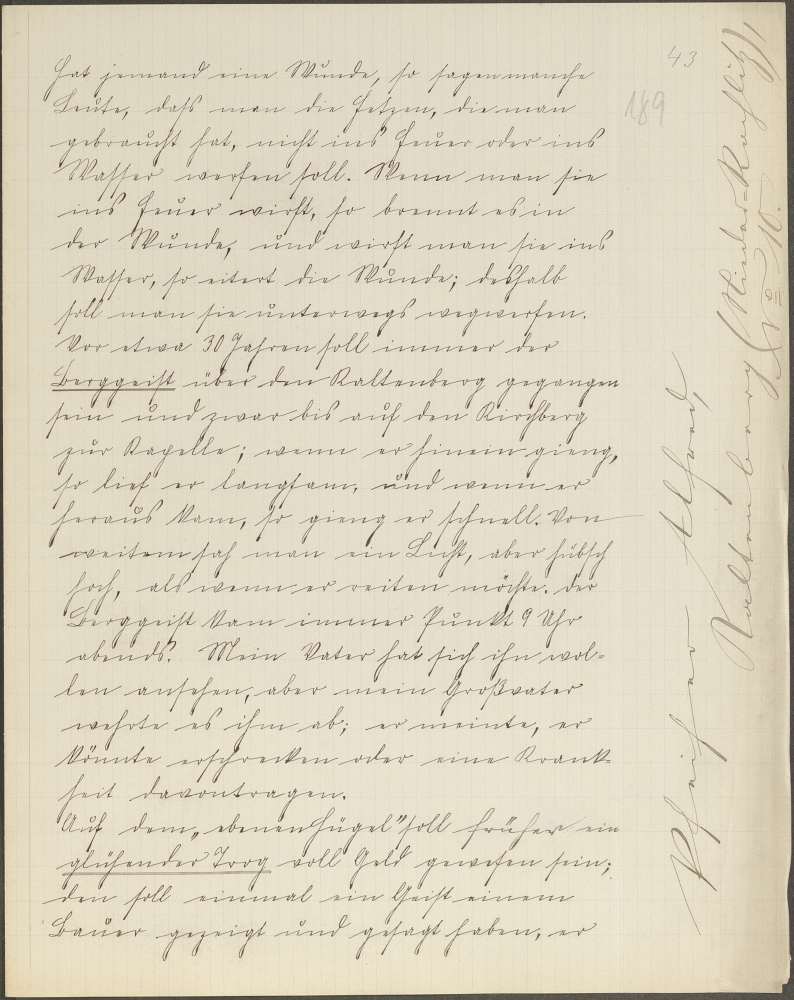 43
189
Hat jemand eine Wunde, so sagen manche
Leute, daß man die Fetzen, die man
gebraucht hat, nicht ins Feuer oder ins
Wasser werfen soll. Wenn man sie
ins Feuer wirft, so brennt es in
der Wunde, und wirft man sie ins
Wasser, so eitert die Wunde; deshalb
soll man sie unterwegs wegwerfen.
Vor etwa 30 Jahren soll immer der
Berggeist über den Kaltenberg gegangen
sein und zwar bis auf den Kirchberg
zur Kapelle; wenn er hinein gieng,
so lief er langsam, und wenn er
heraus kam, so gieng er schnell. Von
weitem sah man ein Licht, aber hübsch
hoch, als wenn er reiten möchte. Der
Berggeist kam immer Punkt 9 Uhr
abends. Mein Vater hat sich ihn wol-
len ansehen, aber mein Großvater
wehrte es ihm ab; er meinte, er
könnte erschrecken oder eine Krank-
heit davontragen.
Auf dem „ebenen Hügel" soll früher ein
glühender Trog voll Geld gewesen sein;
den soll einmal ein Geist einem
Bauer gezeigt und gesagt haben, er
Pfeifer Alfred,
Kaltenberg (Nieder-Rochlitz)
No 10.